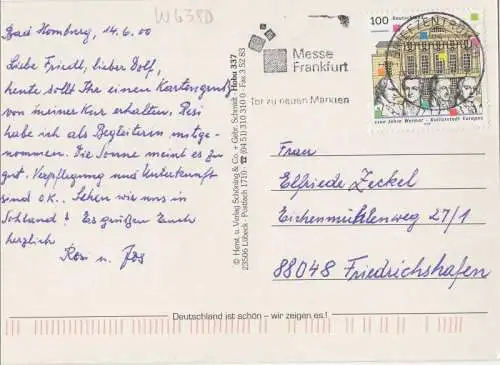 W638D
Bad Homburg, 14.6.00
Liebe Friedl, lieber Dolf,
heute sollt Ihr einen Kartengruß
von meiner Kur erhalten. Resi
habe ich als Begleiterin mitge-
nommen. Die Sonne meint es zu
gut. Verpflegung und Unterkunft
sind o.K.. Sehen wir uns in
? Es grüßen Euch
herzlich
Resi u. Jos
© Herst. u. Verlag Schöning & Co. + Gebr. Schmidt · Hohu 337
23506 Lübeck · Postfach 1710 · ☎ (04 51) 310 310 0 · Fax 3 52 83
Messe
Frankfurt
Tor zu neuen Märkten
BRIEFZENTRUM
100 Deutschland
1100 Jahre Weimar - Kulturstadt Europas
Frau
Elfriede Zeckel
Eichenmühlenweg 27/1
88048 Friedrichshafen
Deutschland ist schön – wir zeigen es!